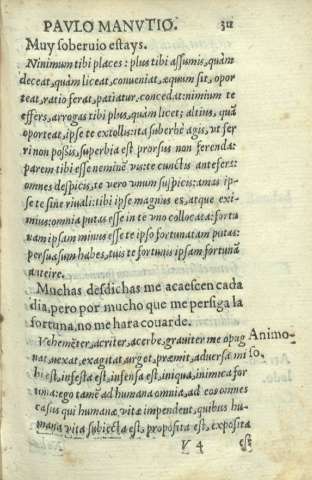 PAVLO MANVTIO. 311
Muy soberuio estays.
Nimium tibi places: plus tibi assumis, quàm
deceat, quàm liceat, conueniat, æquum sit, opor
teat, ratio ferat, patiatur. concedat: nimium te
effers, arrogas tibi plus, quàm licet; altius, quà
oporteat, ipse te extollis: ita suberbè agis, vt fer
ri non possis, superbia est prorsus non ferenda:
parem tibi esse neminē vis: te cunctis antefers:
omnes despicis, te vero vnum suspicis: amas ip-
se te sine riuali: tibi ipse magnus es, atque exi-
mius: omnia putas esse in te vno collocata: fortu
nam ipsam minus esse te ipso fortunatam putas:
persuasum habes, tuis te fortunis ipsam fortunā
anteire.
Muchas desdichas me acaescen cada
dia, pero por mucho que me persiga la
fortuna, no me hara couarde.
Vehemēter, acriter, acerbe, grauiter me opug
nat, vexat, exagitat, vrget, præmit, aduersa mi
Animo-
so.
bi est, infesta est, infensa est, iniqua, inimica for
tuna: ego tamē ad humana omnia, ad eos omnes
casus qui humanæ vitæ impendent, quibus hu-
mana vita subiecta est, proposita est, exposita
V 4 est